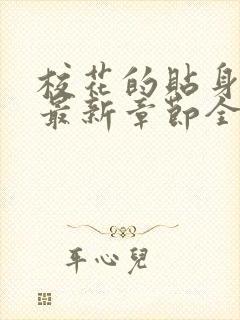 校花的貼身
最新章節全
平心兒